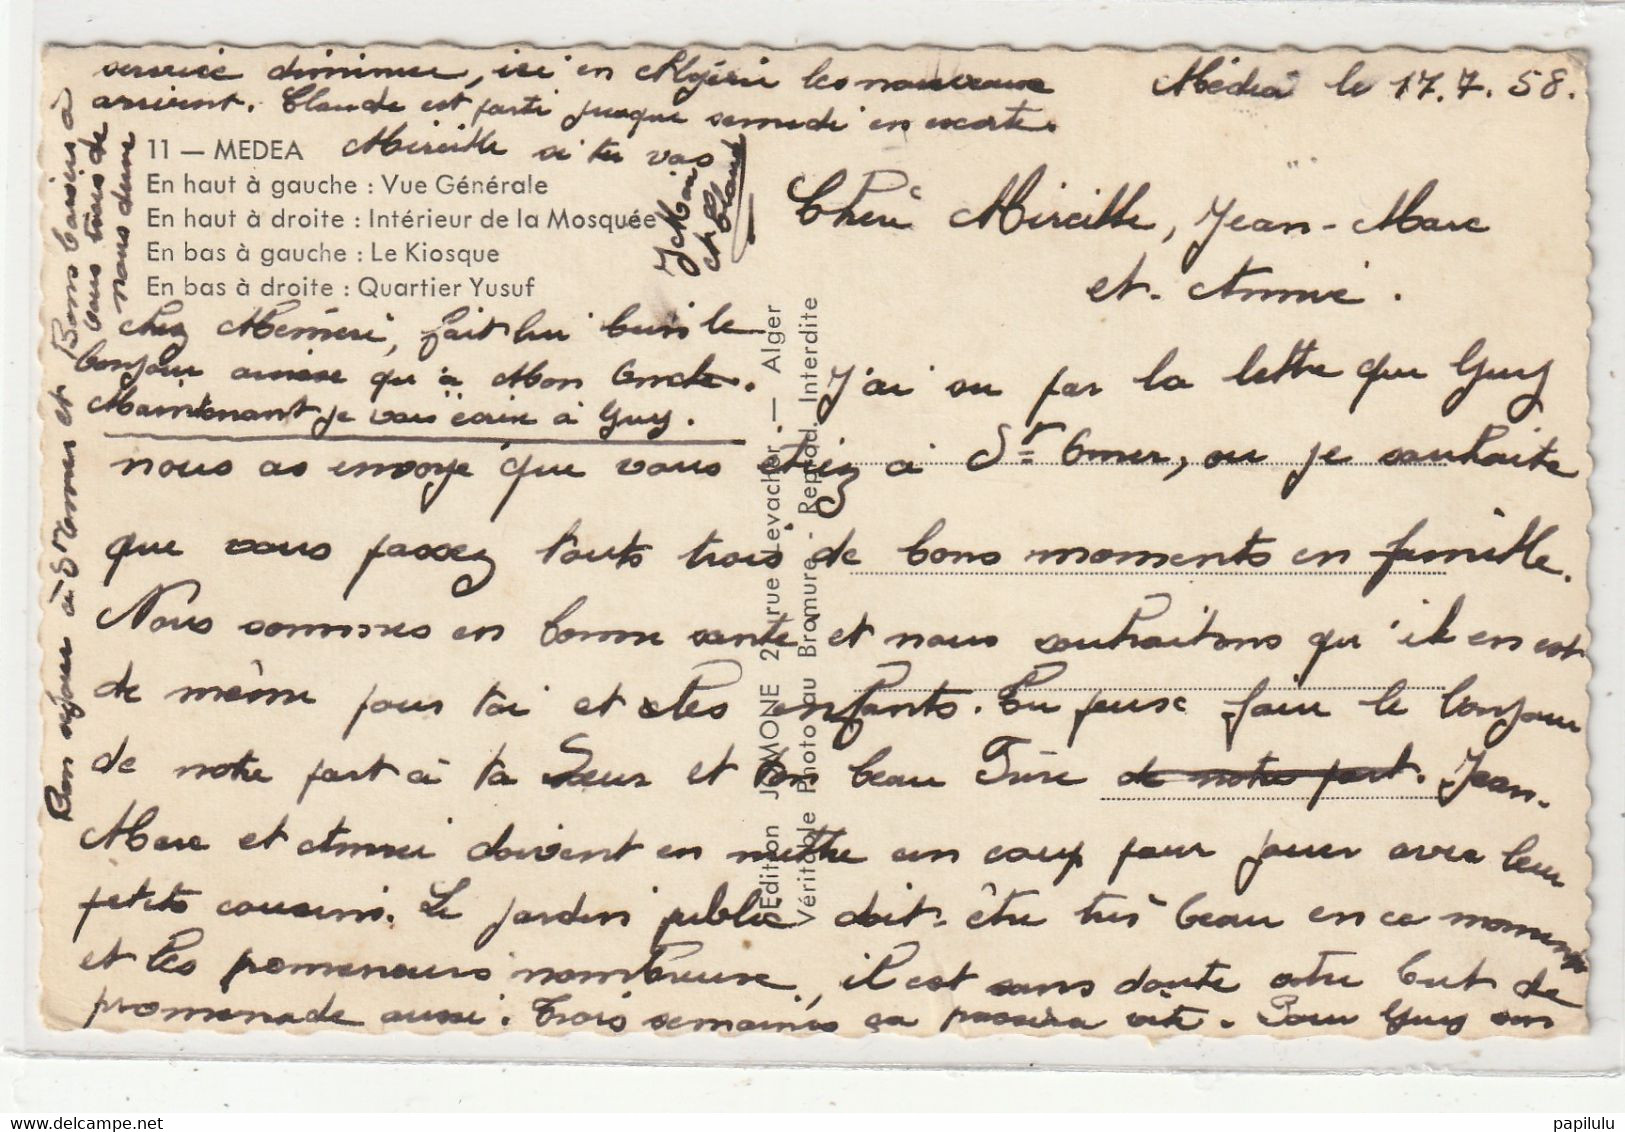 Médéa le 17.7.58.
Cheré Mireille, Jean-Marc
et Annie.
J'ai vu par la lettre que Guy
nous as envoyé que vous etiez à St Omer, ou je souhaite
que vous passez touts trois de bons moments en famille.
Nous sommes en bonne sante et nous souhaitons qu'il en est
de même pour toi et les enfants. Tu peux faire le bonjour
de notre part à ta Sœur et ton beau Frère de notre part. Jean-
Marc et Annie doivent en mettre un coup pour jouer avec leur
petits cousins. Le jardin public doit-être très beau en ce moment
et les promeneurs nombreux, il est sans doute votre but de
promenade aussi. Trois semaines ça passera vite. Pour Guy son
service diminue, ici en Algérie les nouveaux
arrivent. Claude est parti jusque samedi en escorte.
Mireille si tu vas
chez Mémère, fait lui bien le
bonjour ainsi qu'à Mon Oncle.
Maintenant je vais écrire à Guy.
Bon séjour à St Omer et Bons baisers à
vous trois de
nous deux
Claude
11 — MEDEA
En haut à gauche : Vue Générale
En haut à droite : Intérieur de la Mosquée
En bas à gauche : Le Kiosque
En bas à droite : Quartier Yusuf
Edition JOMONE 2 rue Levacher. — Alger
Véritable Photo au Bromure - Reprod. Interdite
papilulu